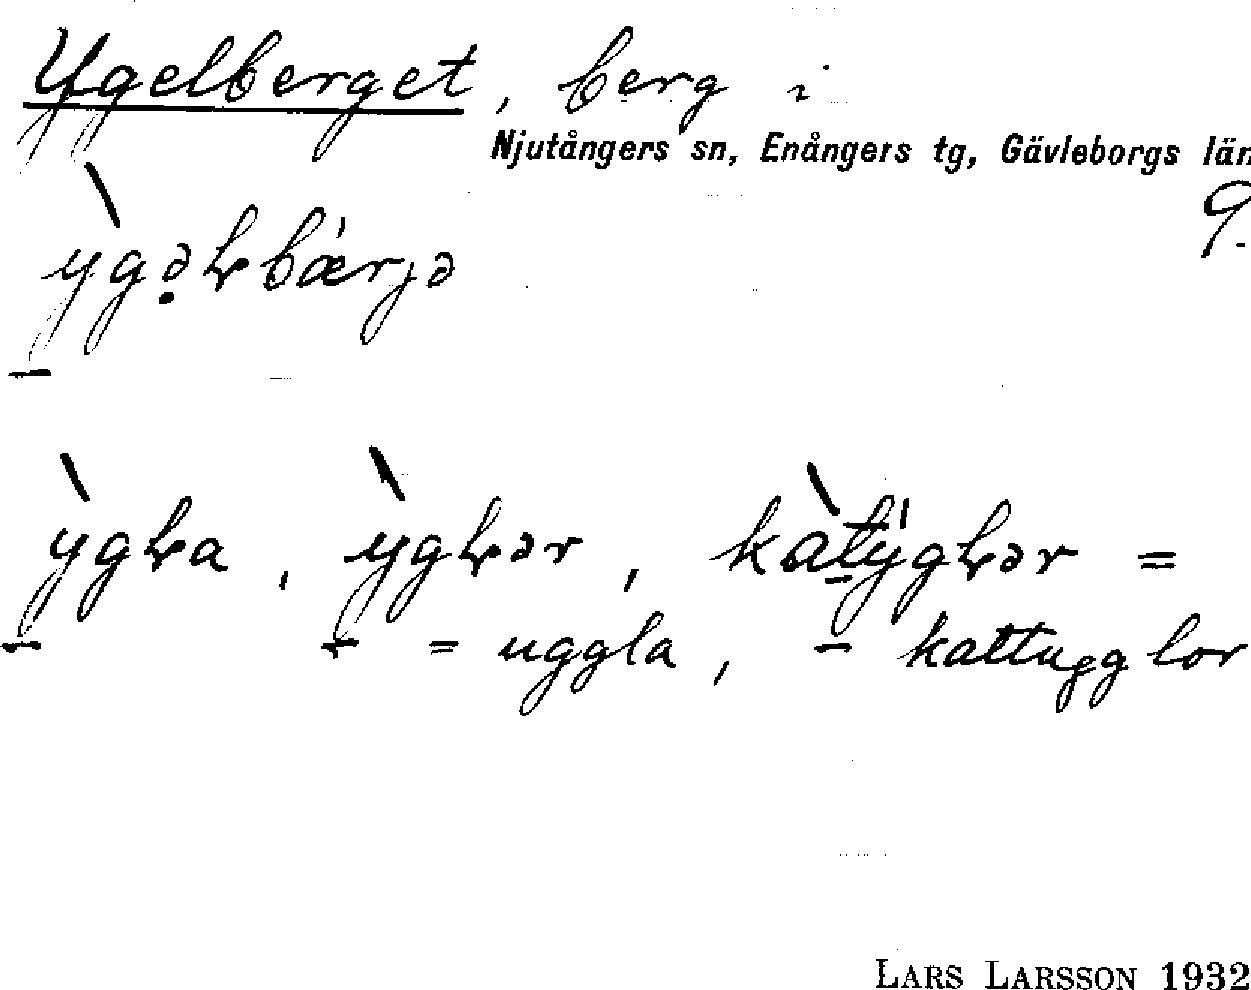 Ygelberget, berg i
Njutångers sn, Enångers tg, Gävleborgs län
9.
ỳgəɫbǽrjə
ỳgɫa, ỳgɫər, kàtýgɫər =
= uggla, kattugglor
LARS LARSSON 1932